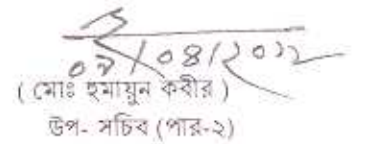 ০৭/০৪/২০২২
( মোঃ হুমায়ুন কবীর )
উপ- সচিব (পার-২)